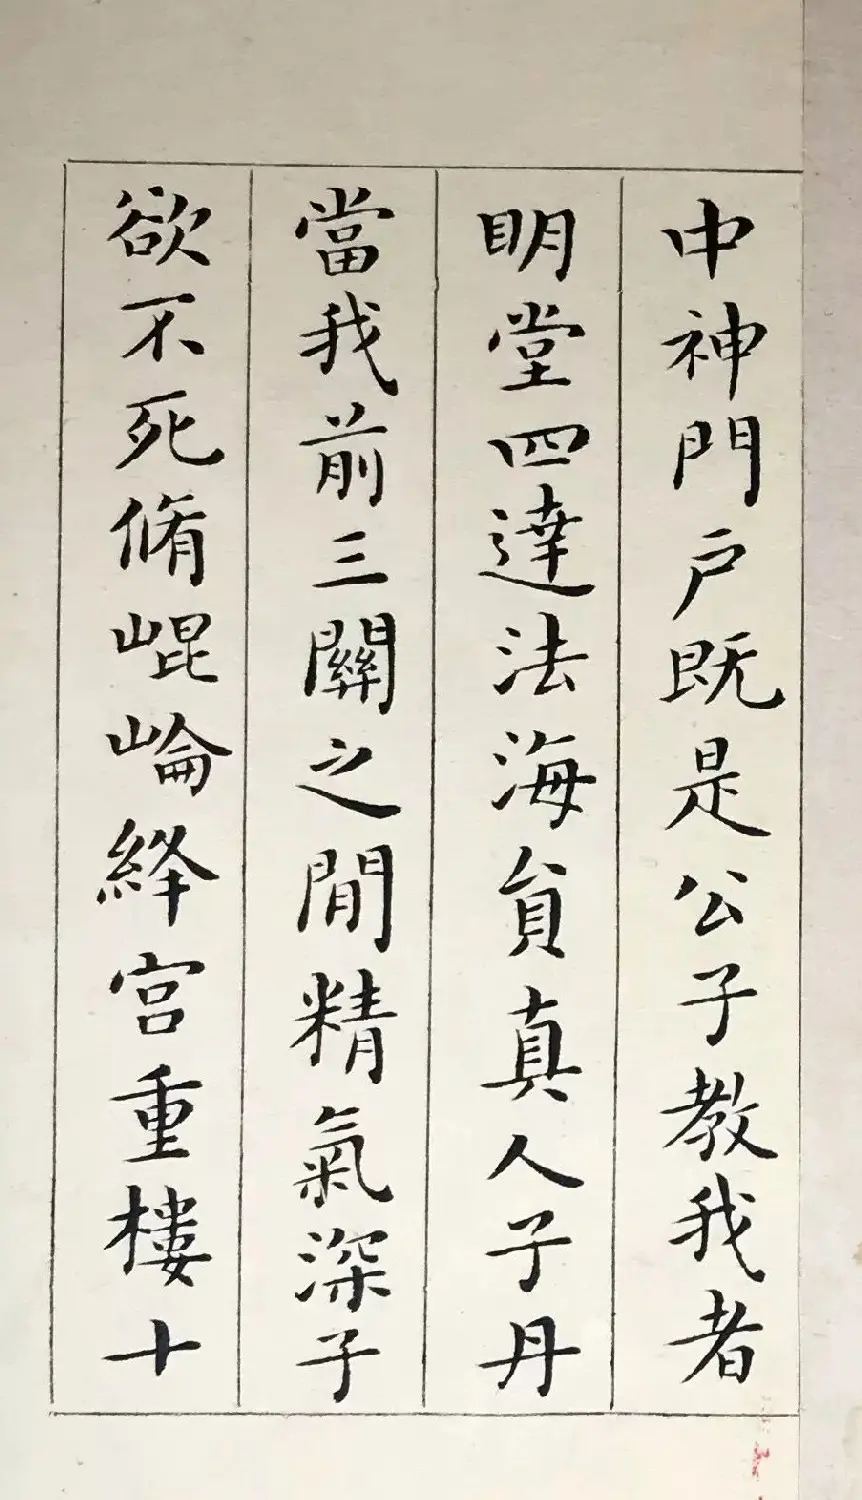 中神門户既是公子教我者
明堂四達法海貟真人子丹
當我前三關之閒精氣深子
欲不死脩崐崘絳宫重樓十